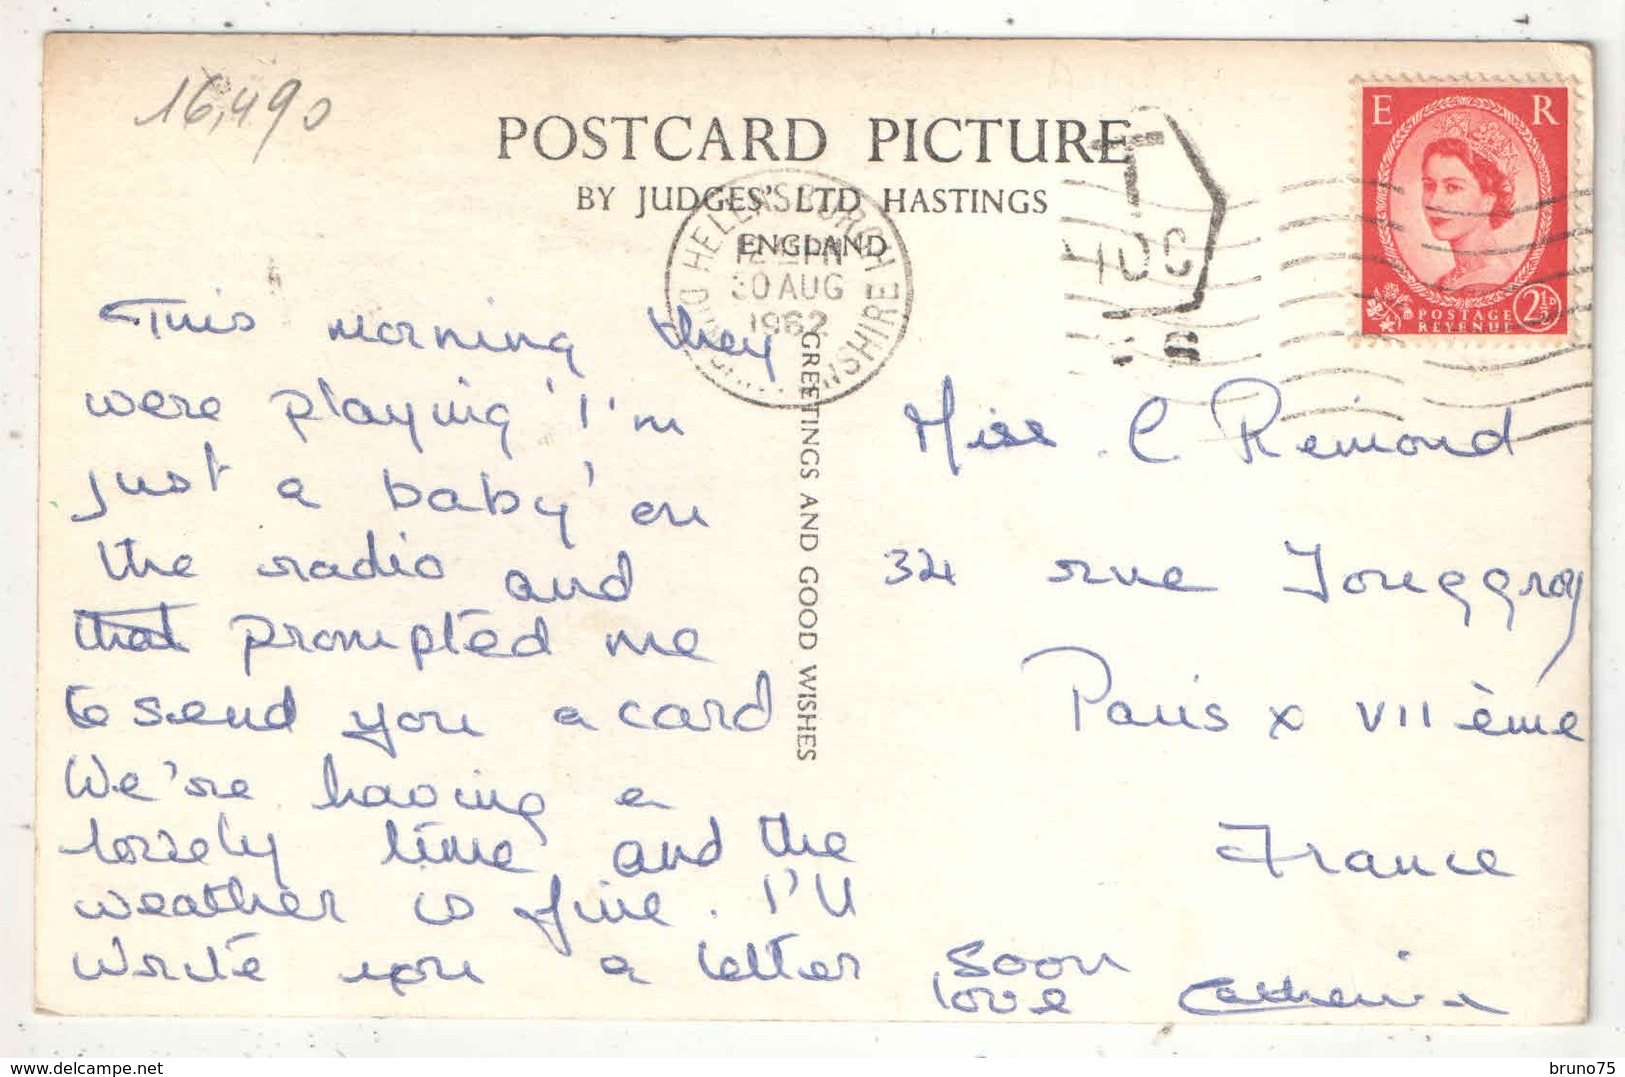 16,490
POSTCARD PICTURE
BY JUDGES' LTD HASTINGS
ENGLAND
30 AUG
1962
GREETINGS AND GOOD WISHES
E R
POSTAGE
REVENUE
2½D
T
This morning they
were playing 'I'm
just a baby' on
the radio and
that prompted me
to send you a card
We're having a
lovely time and the
weather is fine. I'll
write you a letter soon
love Catherine
Miss. C Rémond
34 rue Jouggroy
Paris XVIIème
France
delcampe.net
bruno75